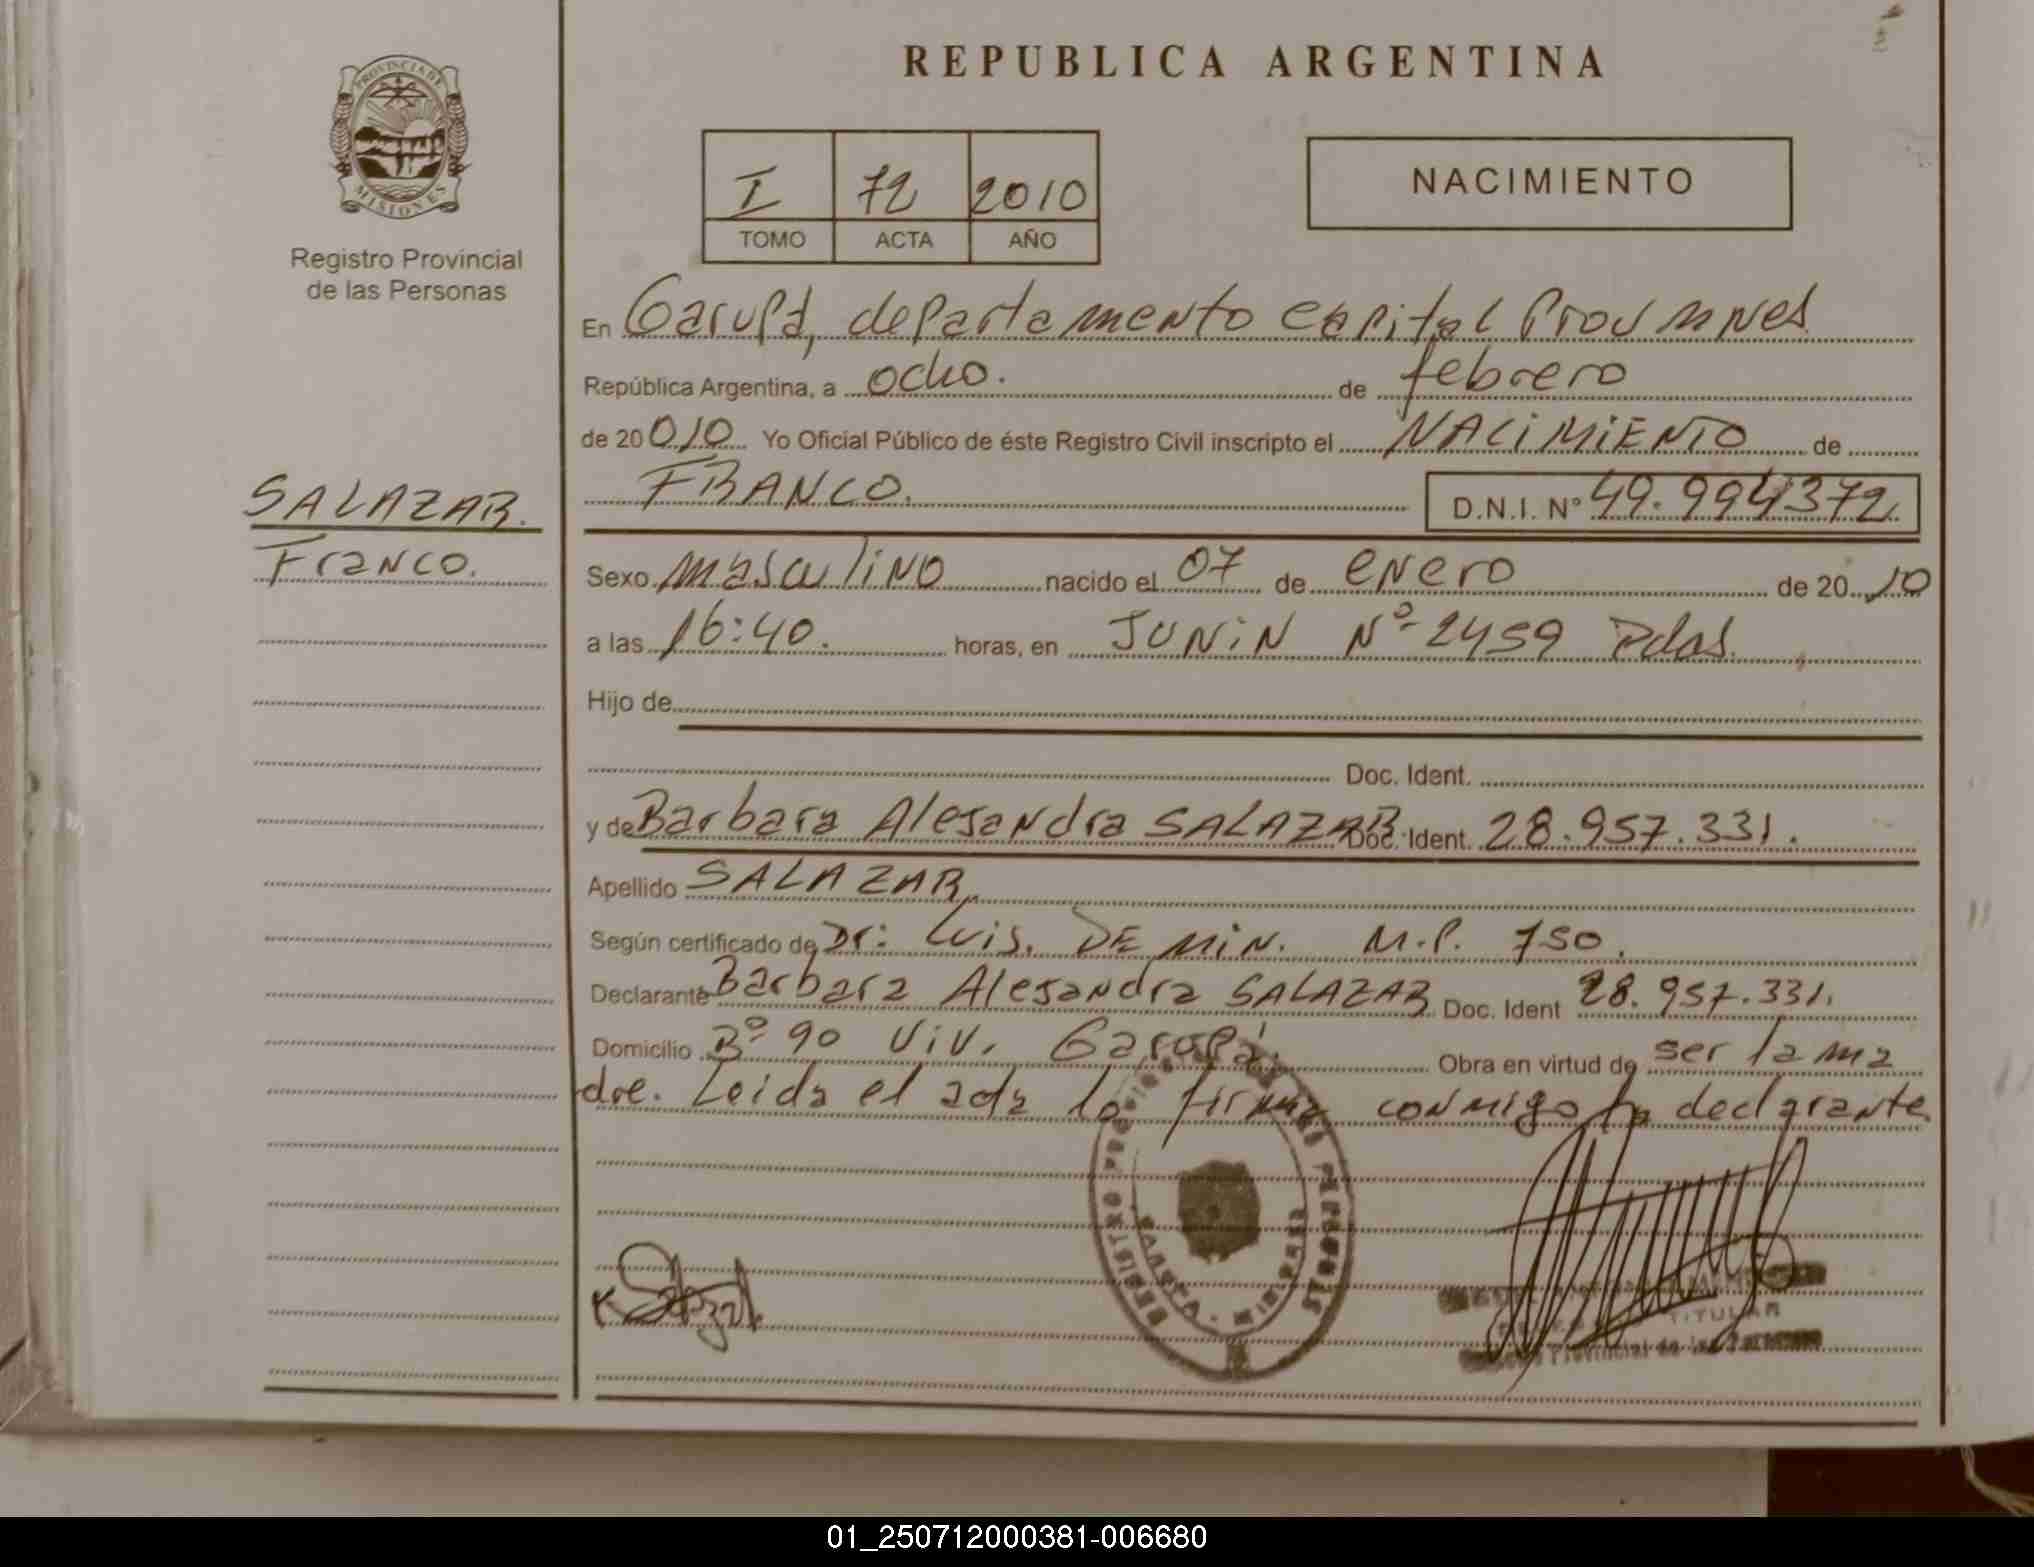 REPUBLICA ARGENTINA
PROVINCIA DE
MISIONES
Registro Provincial
de las Personas
I 72 2010
TOMO ACTA AÑO
NACIMIENTO
En Garupá, departamento capital Prov Mnes
República Argentina, a ocho. de febrero
de 20 010 Yo Oficial Público de éste Registro Civil inscripto el NACIMIENTO de
FRANCO. D.N.I. Nº 49.994372
SALAZAR.
Franco.
Sexo masculino nacido el 07 de enero de 20 10
a las 16:40. horas, en JUNIN Nº 2459 Pdas.
Hijo de
Doc. Ident.
y de Barbara Alejandra SALAZAR Doc. Ident. 28.957.331.
Apellido SALAZAR
Según certificado de Dr: Luis. DE MIN. M.P. 750.
Declarante Barbara Alejandra SALAZAR Doc. Ident 28.957.331.
Domicilio Bº 90 Viv. Garupá. Obra en virtud de ser la ma
dre. Leida el acta la firma conmigo la declarante
REGISTRO PROVINCIAL DE LAS PERSONAS
TITULAR
Provincial de las Personas
01_250712000381-006680